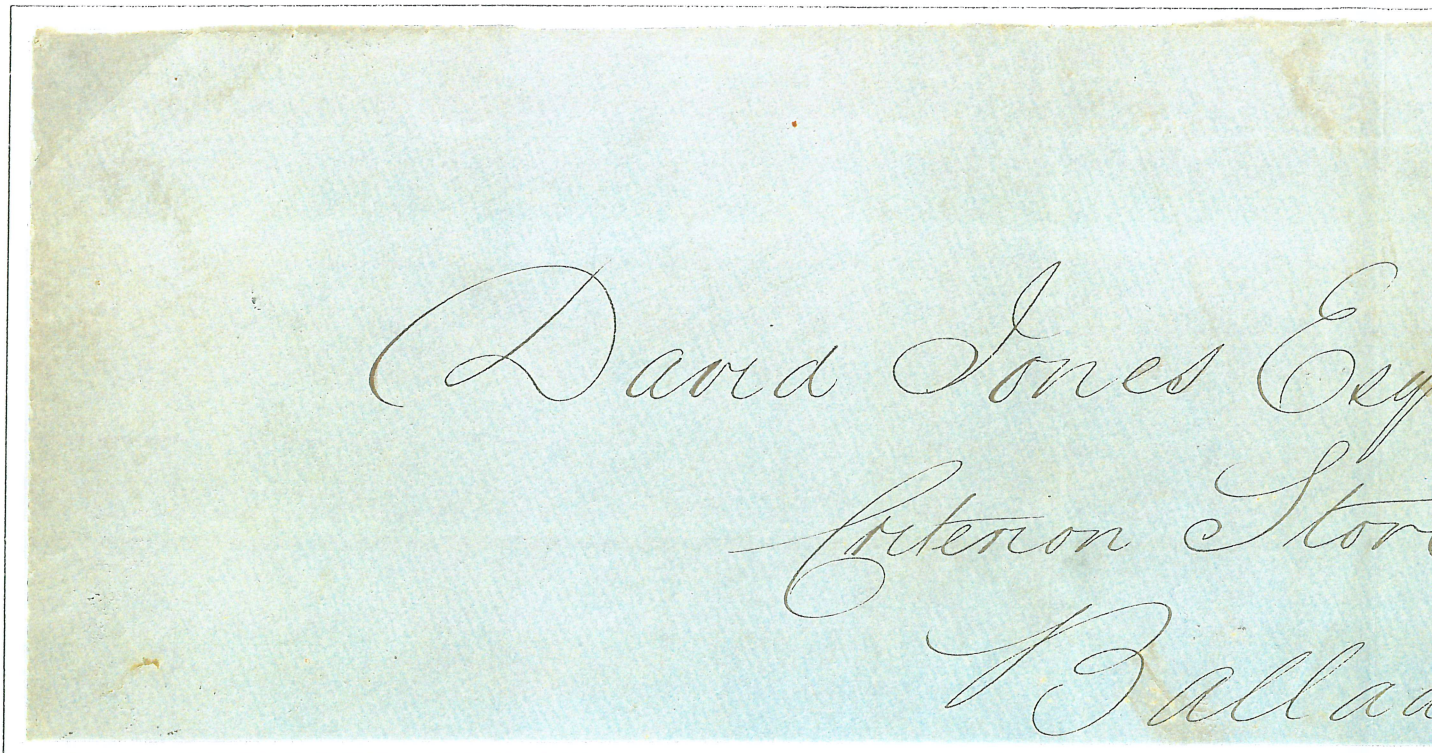 David Jones Esq
Criterion Stor
Balla